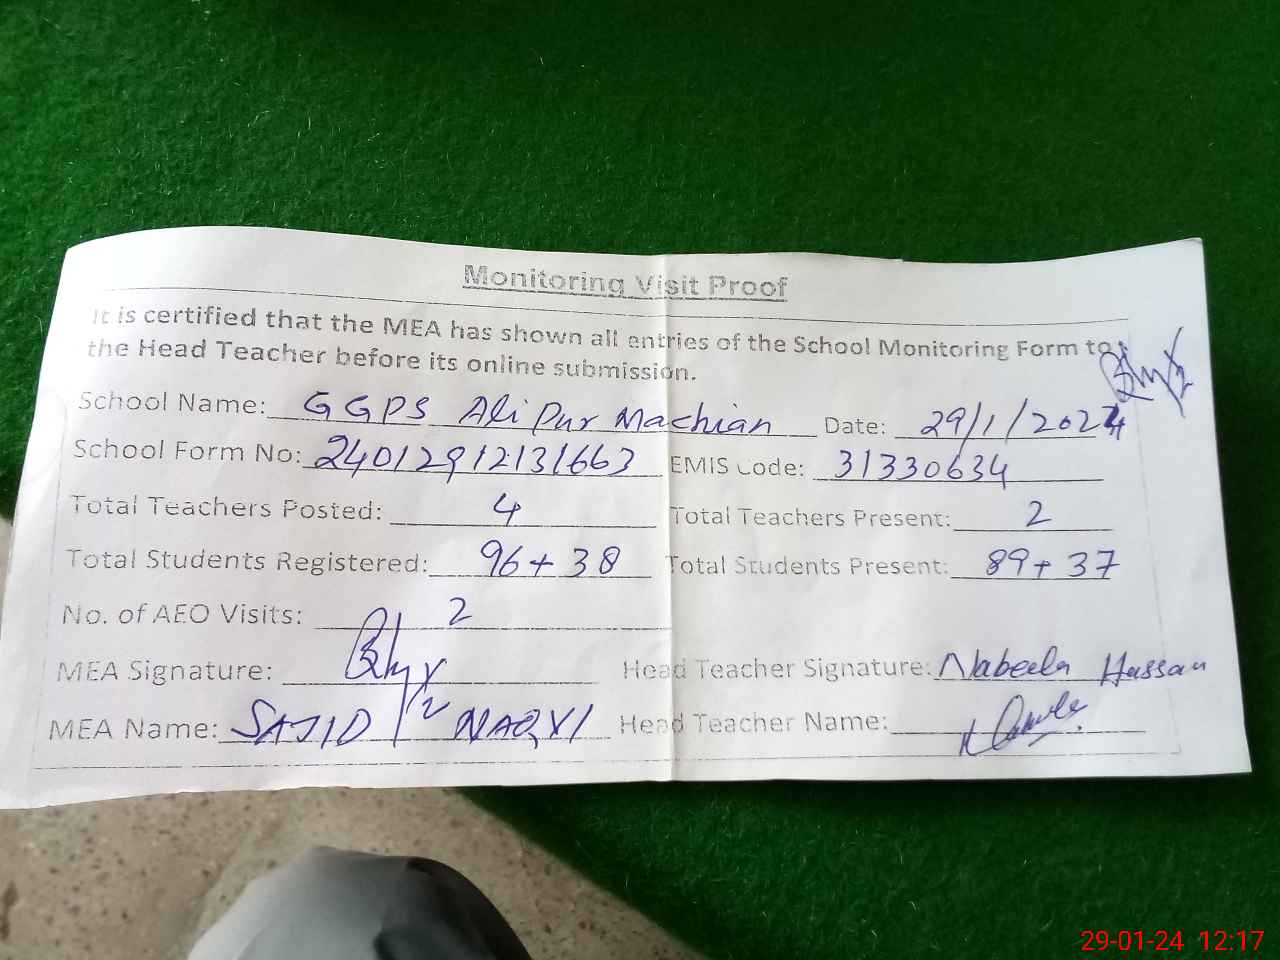 Monitoring Visit Proof
It is certified that the MEA has shown all entries of the School Monitoring Form to
the Head Teacher before its online submission.
School Name: GGPS Ali Pur Machian Date: 29/1/2024
School Form No: 24012912131663 EMIS Code: 31330634
Total Teachers Posted: 4 Total Teachers Present: 2
Total Students Registered: 96+38 Total Students Present: 89+37
No. of AEO Visits: 2
MEA Signature: Head Teacher Signature: Nabeela Hassan
MEA Name: SAJID NAQVI Head Teacher Name:
29-01-24 12:17